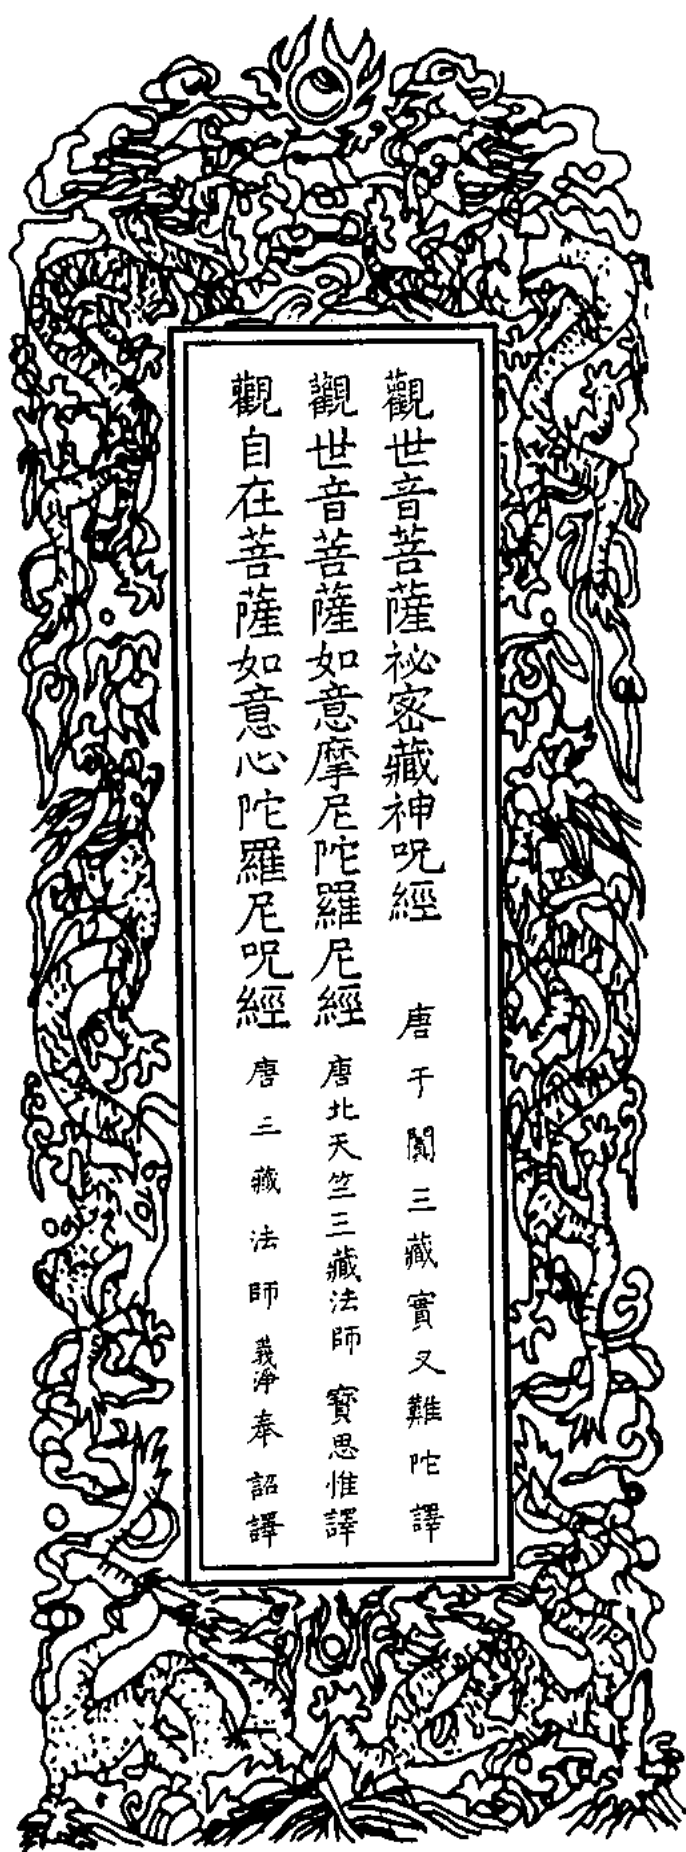 觀世音菩薩祕密藏神呪經 唐于闐三藏實叉難陀譯
觀世音菩薩如意摩尼陀羅尼經 唐北天竺三藏法師寶思惟譯
觀自在菩薩如意心陀羅尼呪經 唐三藏法師義淨奉詔譯